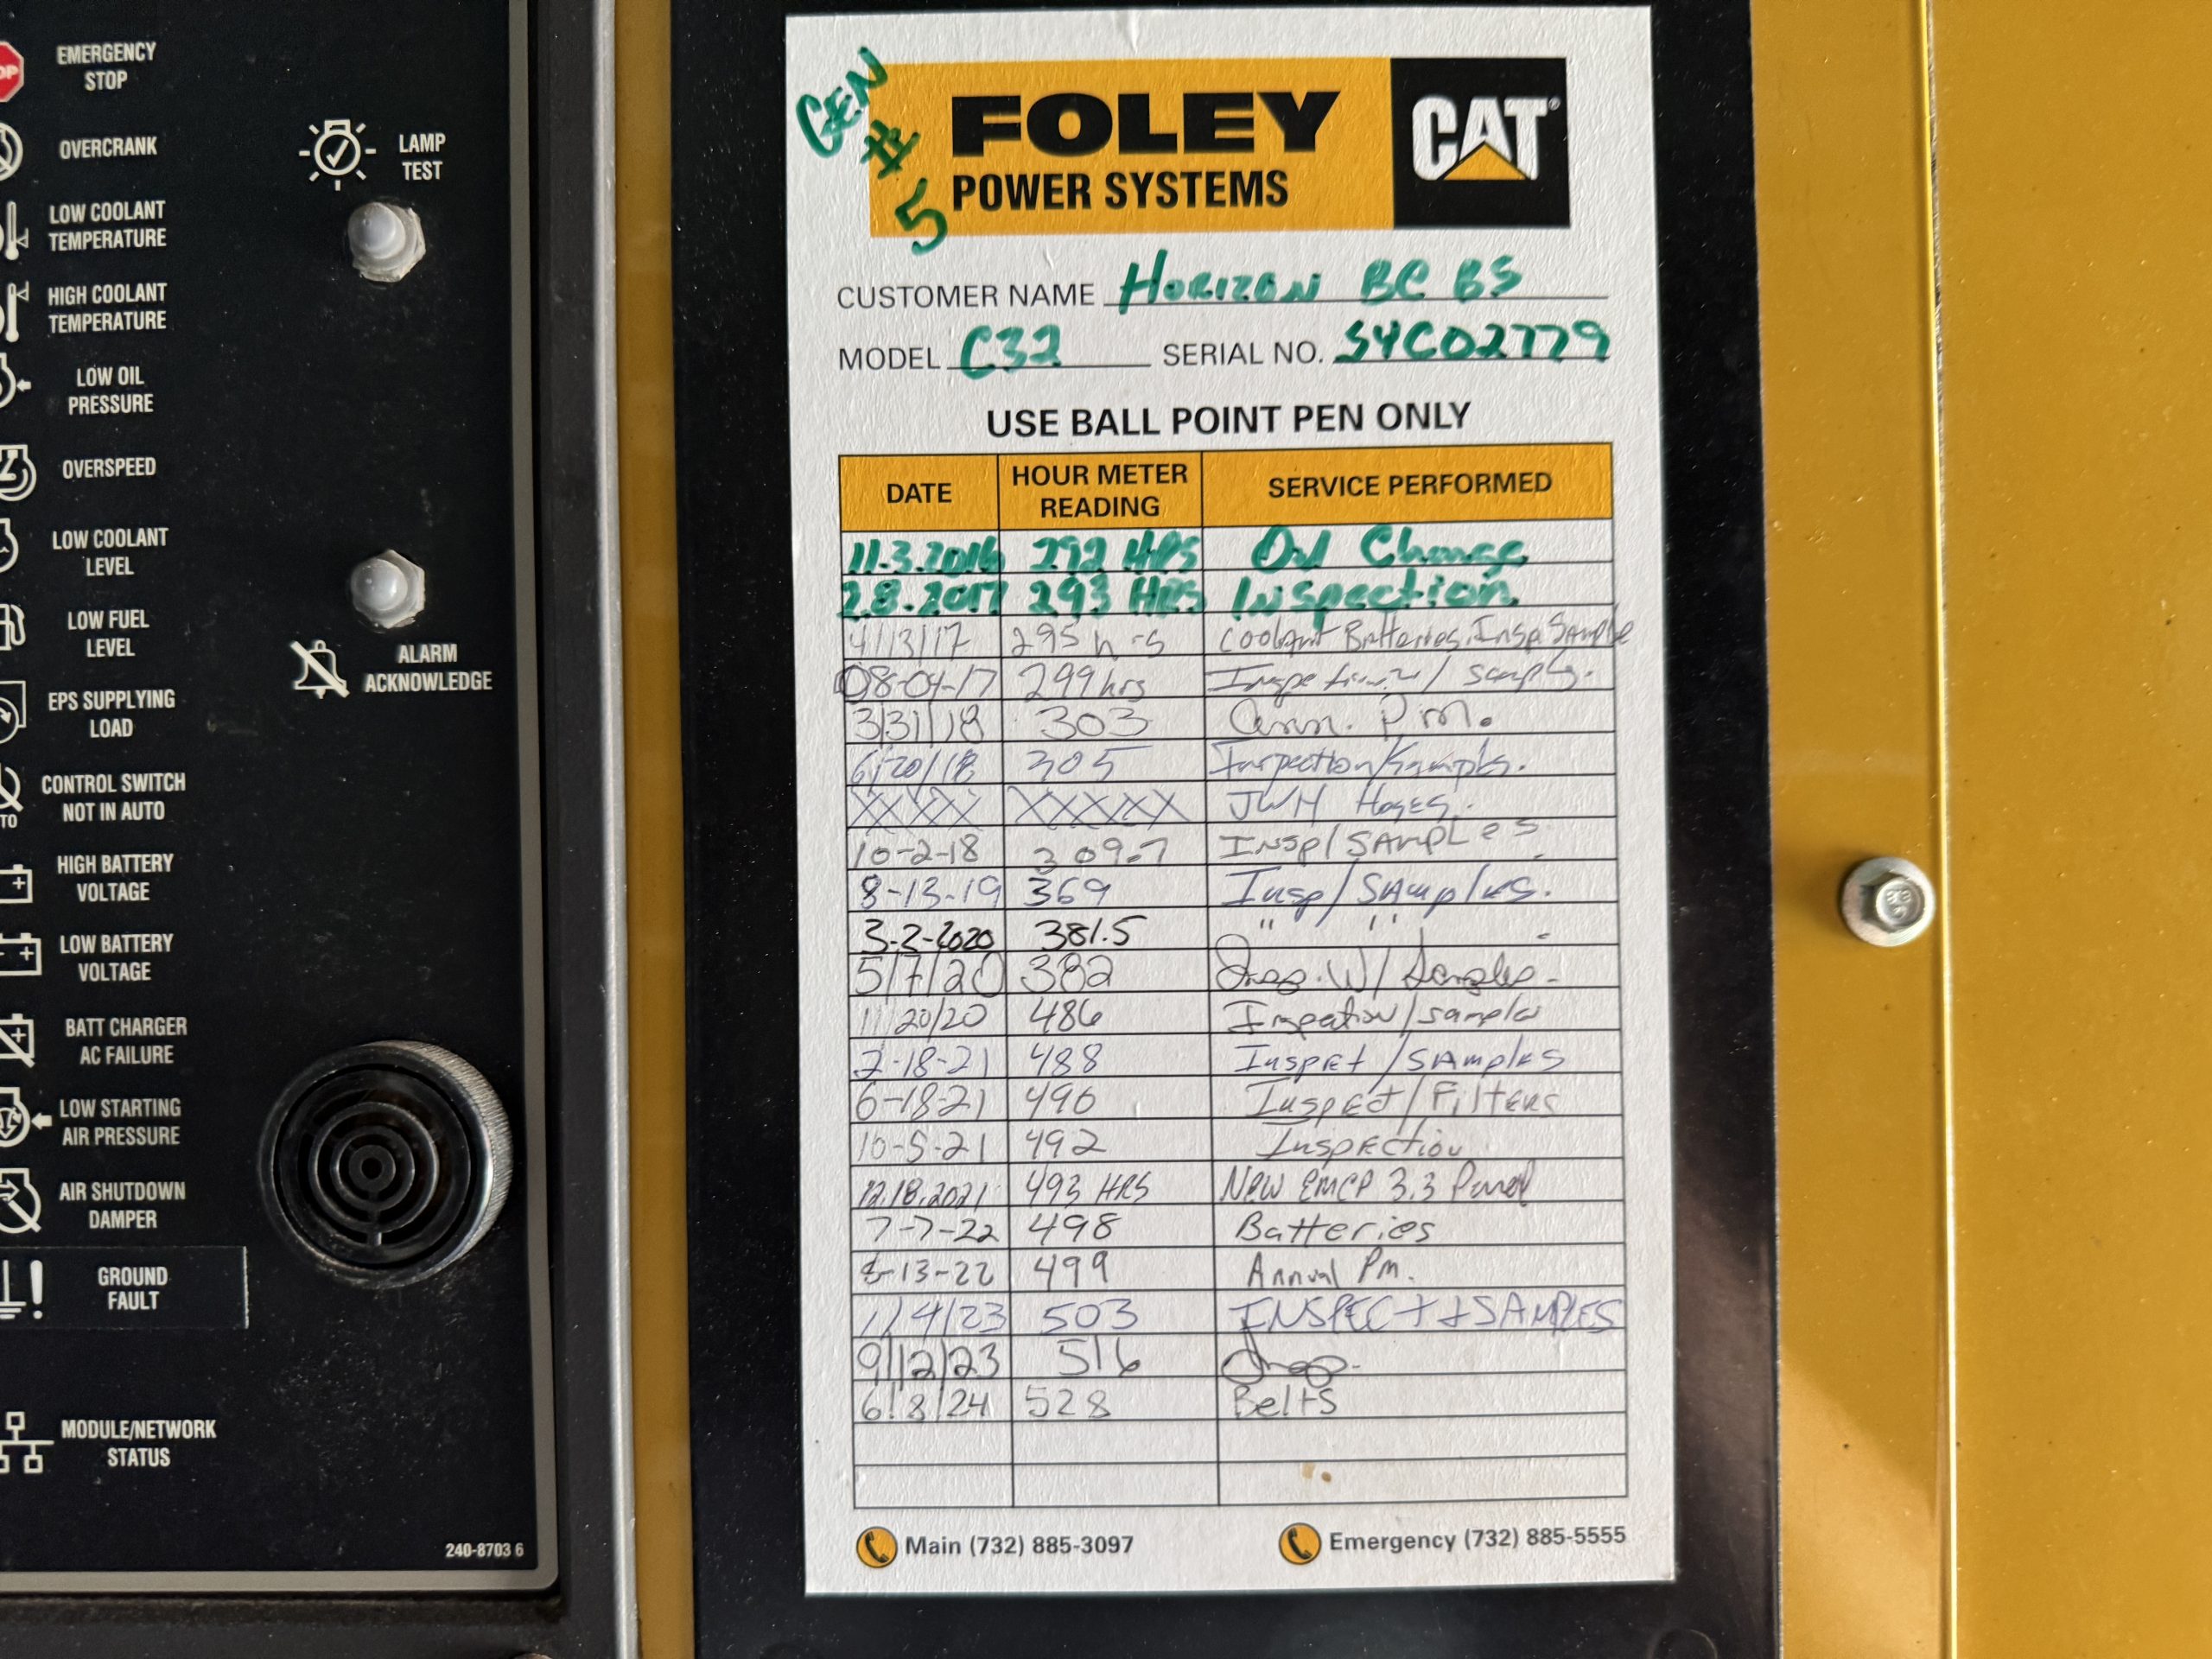 EMERGENCY
STOP
OVERCRANK
LAMP
TEST
LOW COOLANT
TEMPERATURE
HIGH COOLANT
TEMPERATURE
LOW OIL
PRESSURE
OVERSPEED
LOW COOLANT
LEVEL
LOW FUEL
LEVEL
ALARM
ACKNOWLEDGE
EPS SUPPLYING
LOAD
CONTROL SWITCH
NOT IN AUTO
HIGH BATTERY
VOLTAGE
LOW BATTERY
VOLTAGE
BATT CHARGER
AC FAILURE
LOW STARTING
AIR PRESSURE
AIR SHUTDOWN
DAMPER
GROUND
FAULT
MODULE/NETWORK
STATUS
240-8703 6
GEN
#
5
FOLEY
POWER SYSTEMS
CAT®
CUSTOMER NAME HORIZON BC BS
MODEL C32 SERIAL NO. SYC02779
USE BALL POINT PEN ONLY
DATE HOUR METER READING SERVICE PERFORMED
11.3.2016 292 HRS Oil Change
2.8.2017 293 HRS Inspection
4/13/17 295 hrs Coolant Batteries, Insp Sample
08-04-17 299 hrs Inspection w/ sampls.
3/31/18 303 Ann. P.m.
6/20/18 305 Inspection/Sampls.
XXXX XXXXX JWH Hoses.
10-2-18 309.7 INSP/SAMPLES
8-13-19 369 Insp/SAmples.
3-2-2020 381.5 " "
5/7/20 382 Insp. W/ Samples
11/20/20 486 Inspection/samples
2-18-21 488 Inspect/SAmples
6-18-21 490 Inspect/Filters
10-5-21 492 Inspection
12.18.2021 493 HRS New EMCP 3.3 Panel
7-7-22 498 Batteries
8-13-22 499 Annual Pm.
1/4/23 503 INSPECT + SAMPLES
9/12/23 516 Insp.
6/8/24 528 Belts
Main (732) 885-3097 Emergency (732) 885-5555